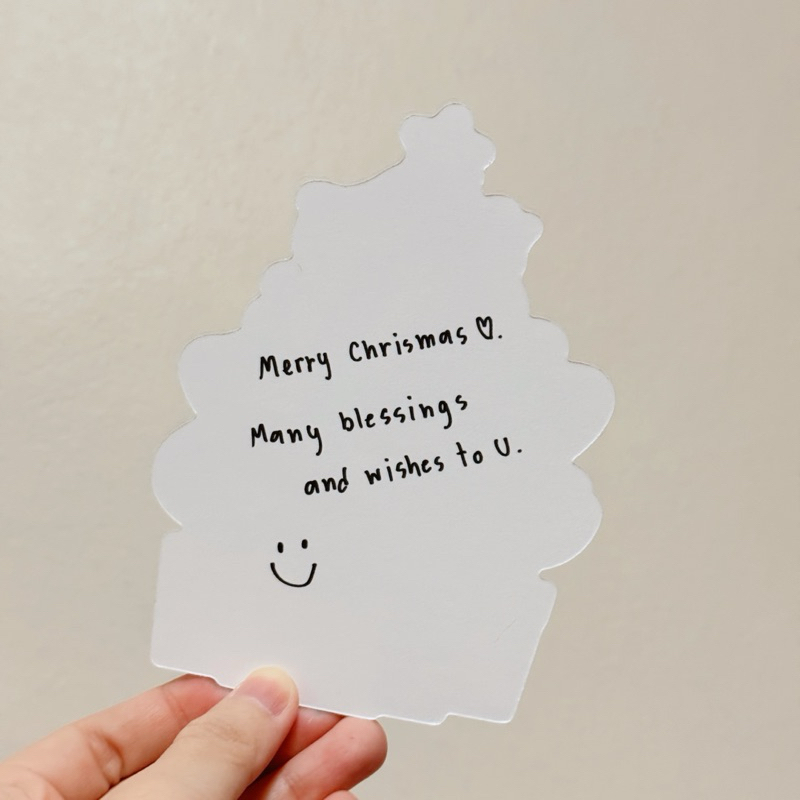 Merry Chrismas ♡.
Many blessings
and wishes to U.